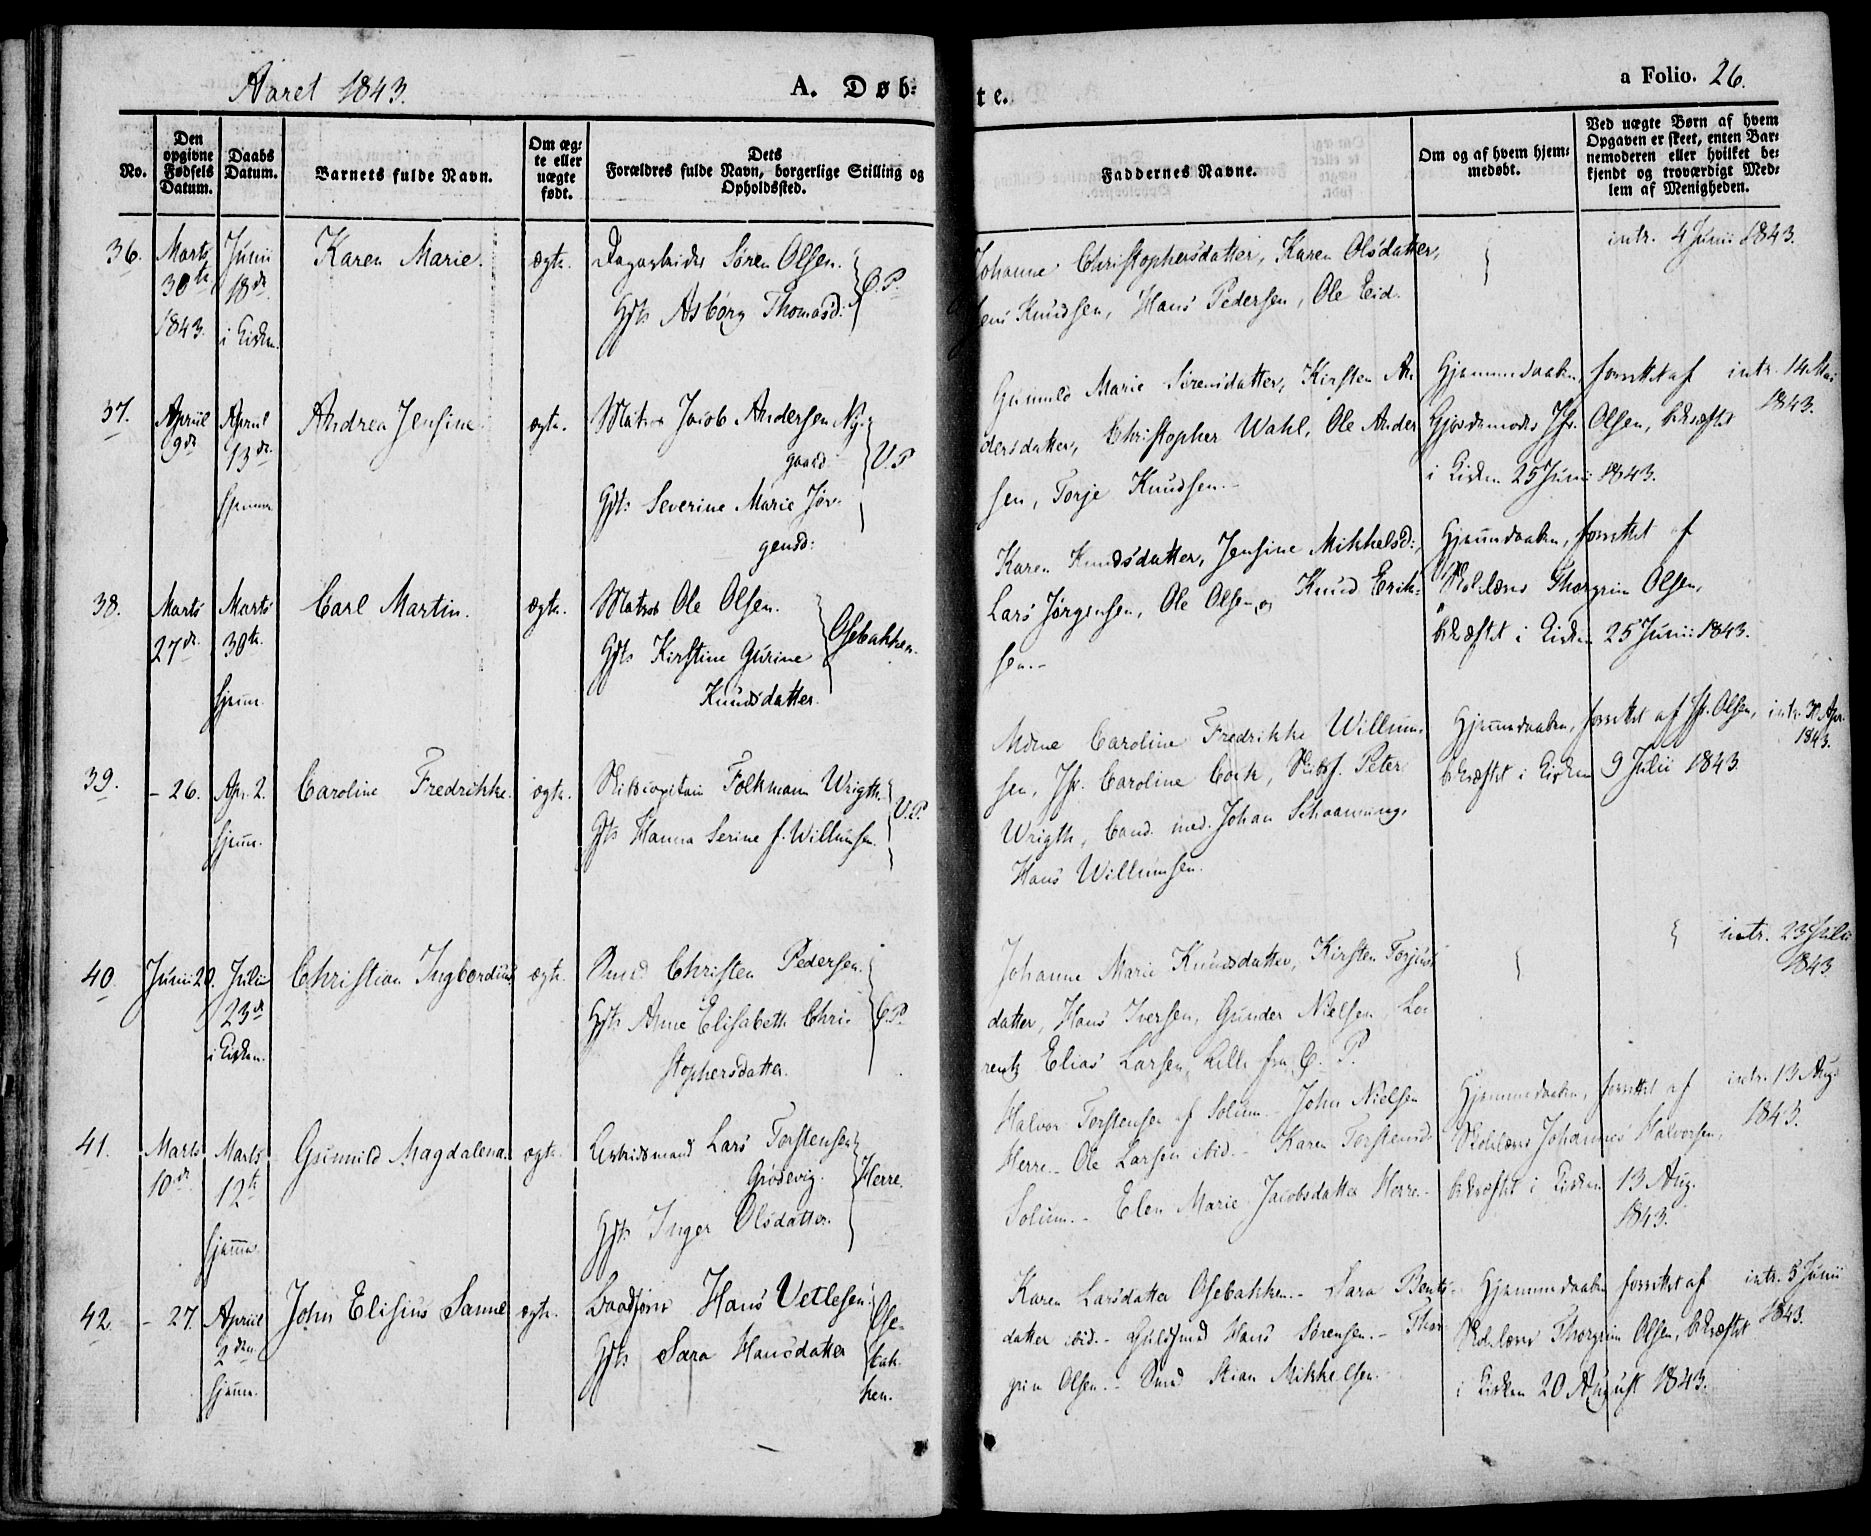 Aaret 1843.
A. Døb-
te.
a Folio. 26.
No.
Den opgivne Fødsels Datum.
Daabs Datum.
Barnets fulde Navn.
Om æg-
te eller
uægte
født.
Dets
Forældres fulde Navn, borgerlige Stilling og
Opholdssted.
Faddernes Navne.
Om og af hvem hjem-
medøbt.
Ved uægte Børn af hvem
Opgaven er skeet, enten Bar-
nemoderen eller hvilket be-
kjendt og troværdigt Med-
lem af Menigheden.
36.
Marts
30te
1843.
Junii
18de
i Kirken.
Karen Marie.
ægte.
Dagarbeider Søren Olsen.
Hst: Asborg Thomasd:
Ø.P.
Johanne Christophersdatter, Karen Olsdatter,
Jens Knudsen, Hans Pedersen, Ole Eid.
intr. 4 Junii 1843.
37.
April
9de
April
13de
hjemme
Andrea Jensine.
ægte.
Matros Jacob Andersen Ny-
gaard
Hst: Severine Marie Jør-
gensd:
V.P
Gunnild Marie Sørensdatter, Kirsten An
dersdatter, Christopher Wahl, Ole Ander
sen, Torje Knudsen.
Hjemmedøbt, forrettet af
Gjordemoder Jfr. Olsen, bekræftet
i Kirken 25 Junii 1843.
intr. 14 Mai
1843.
38.
Marts
27de
Marts
30te
hjem.
Carl Martin.
ægte.
Matros Ole Olsen.
Hst: Kirstine Gurine
Knudsdatter.
Osebakken.
Karen Knudsdatter, Jensine Mikkelsd:,
Lars Jørgensen, Ole Olsen og Knud Erik-
sen.-
Hjemmedaaben, forrettet af
Skolelærer Thorgrim Olsen,
bekræftet i Kirken 25 Junii 1843.
39.
- 26.
Apr. 2.
hjem.
Caroline Fredrikke.
ægte.
Skibscapitain Folkmann Wrigth.
Hst: Hanna Serine f. Willumsen.
V.P.
Mdme Caroline Fredrikke Willum-
sen, Jfr. Caroline Cock, Skibsf. Peter
Wrigth, Cand. med. Johan Schaanning,
Hans Willumsen.
Hjemmedaaben, forrettet af Jfr. Olsen,
bekræftet i Kirken 9 Julii 1843.
intr. 30 Apr.
1843.
40.
Junii 20.
Julii
23de
i Kirken.
Christian Ingbordius
ægte.
Smed Christen Pedersen.
Hst: Anne Elisabeth Chri-
stophersdatter.
Ø.P.
Johanne Marie Knudsdatter, Kirsten Torjus
datter, Hans Iversen, Gunder Nielsen, Lo-
rentz Elias Larsen, alle fra Ø. P.
intr. 23 Julii
1843.
41.
Marts
10de
Marts
12te
hjemme.
Gunnild Magdalena.
ægte.
Arbeidsmand Lars Torstensen
Grødevig.
Hst: Inger Olsdatter.
Herre.
Halvor Torstensen af Solum - John Nielsen
Herre - Ole Larsen ibid. - Karen Torstensd.
Solum. - Elen Marie Jacobsdatter Herre.-
Hjemmedaaben, forrettet af
Skolelærer Johannes Halvorsen,
bekræftet i Kirken 13 Aug.
1843.
intr. 13 Aug.
1843.
42.
- 27.
April
2den
hjem.
John Elisius Samuel
ægte.
Baadfører Hans Vetlesen.
Hst: Sara Hansdatter
Ose-
bak-
ken.
Karen Larsdatter Osebakken.- Sara Bents-
datter ibid. - Guldsmed Hans Sørensen. - Thor
grim Olsen. - Smed Stian Mikkelsen.
Hjemmedaaben forrettet af
Skolelærer Thorgrim Olsen, bekræftet
i Kirken 20 August 1843.
intr. 5 Junii
1843.